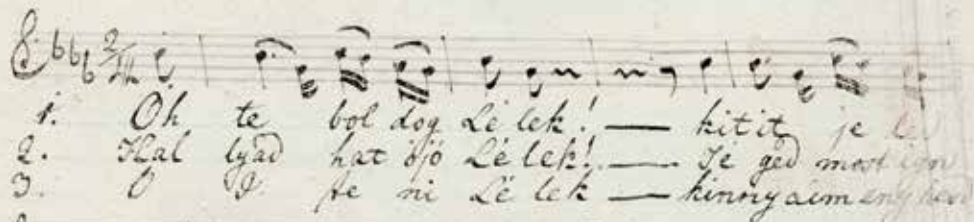 1. Oh te bol dog Lé lek! — kit it je len
2. Hal lyad hat ójó Lé lek! — Té ged most ign
3. O I. fe ni Lé lek — kinny aim eny hevi